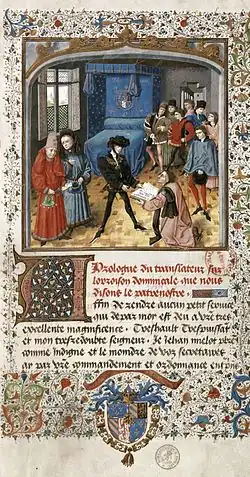 Prologue du translateur sur
loroison dominicale que nous
disons le patrenostre.
Affin de rendre aucun petit service
qui de par moy est deu a vre tres
excellente magnificence Treshault Trespuissat
et mon tresredoubte seigneur Je Jehan mielot pbre
come indigne et le mondre de voz secretaires
ay par vre commandement et ordonnance